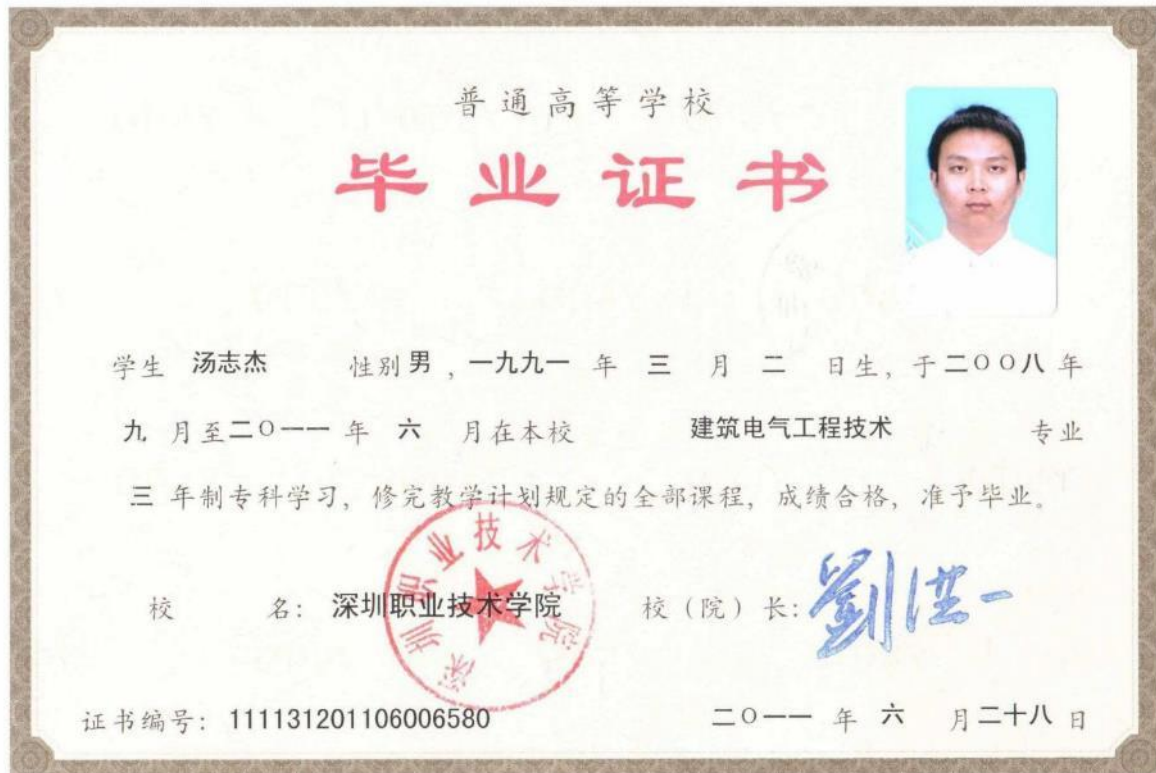 普通高等学校
毕业证书
学生 汤志杰 性别 男 , 一九九一 年 三 月 二 日生, 于 二〇〇八 年
九 月至 二〇一一 年 六 月在本校 建筑电气工程技术 专业
三 年制专科学习, 修完教学计划规定的全部课程, 成绩合格, 准予毕业。
校 名: 深圳职业技术学院 校(院)长: 劉洪一
深圳职业技术学院
证书编号: 111131201106006580 二〇一一 年 六 月 二十八 日